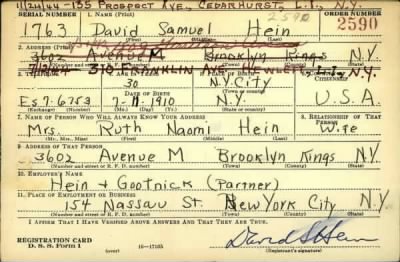 11/21/44 - 135 PROSPECT AVE., CEDARHURST, L.I., N.Y.
SERIAL NUMBER 1. NAME (Print) ORDER NUMBER
1763 David Samuel Hein 2590 2590
(First) (Middle) (Last)
2. ADDRESS (Print)
3602 Avenue M Brooklyn Kings N.Y.
310 FRANKLIN AVE. HEWLETT, L.I., N.Y.
(Number and street or R. F. D. number) (Town) (County) (State)
30 N.Y. City
ES 7-6753 7-11-1910 N.Y. U.S.A
7. NAME OF PERSON WHO WILL ALWAYS KNOW YOUR ADDRESS 8. RELATIONSHIP OF THAT PERSON
Mrs. Ruth Naomi Hein Wife
(Mr., Mrs., Miss) (First) (Middle) (Last)
9. ADDRESS OF THAT PERSON
3602 Avenue M Brooklyn Kings N.Y.
(Number and street or R. F. D. number) (Town) (County) (State)
10. EMPLOYER'S NAME
Hein & Gootnick (Partner)
11. PLACE OF EMPLOYMENT OR BUSINESS
154 Nassau St. New York City N.Y.
(Number and street or R. F. D. number) (Town) (County) (State)
I AFFIRM THAT I HAVE VERIFIED ABOVE ANSWERS AND THAT THEY ARE TRUE.
REGISTRATION CARD
D. S. S. Form 1 (over) 16-17105 David S Hein
(Registrant's signature)